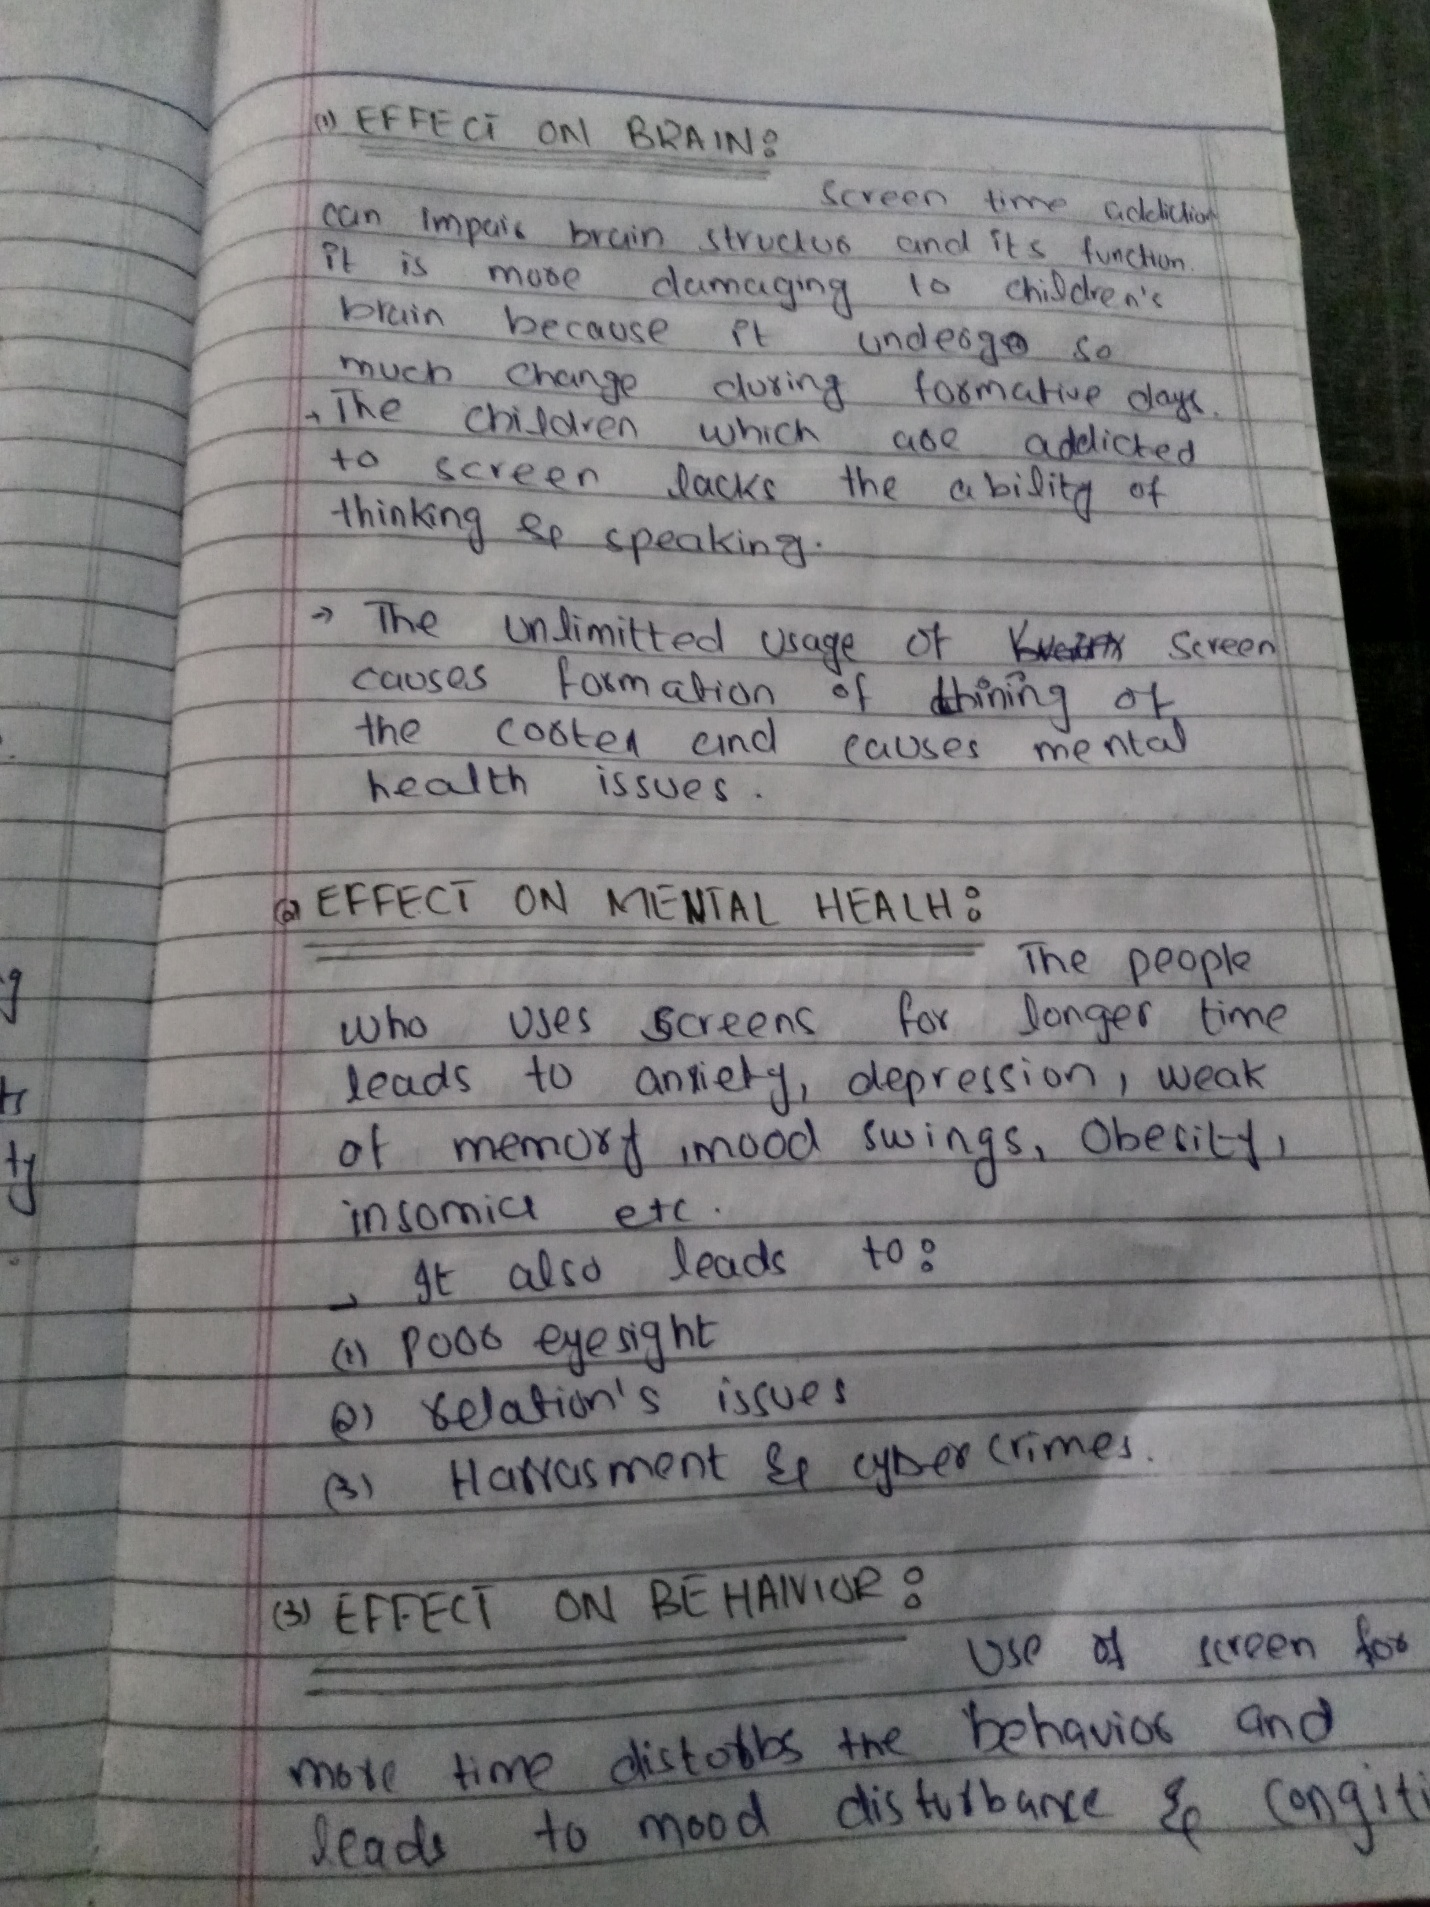 (1) EFFECT ON BRAIN:
Screen time addiction
can impair brain structur and its function.
it is more damaging to children's
brain because it undergo so
much change during formative days.
→ The children which are addicted
to screen lacks the ability of
thinking & speaking.
→ The unlimitted usage of screen
causes formation of thining of
the cortex and causes mental
health issues.
(2) EFFECT ON MENTAL HEALH:
The people
who uses screens for longer time
leads to anxiety, depression, weak
of memory, mood swings, Obesity,
insomia etc.
→ It also leads to:
(1) Poor eyesight
(2) relation's issues
(3) Harrasment & cyber crimes.
(3) EFFECT ON BEHAIVIOR:
Use of screen for
more time distorbs the behavior and
leads to mood disturbance & congiti
g
ts
ty